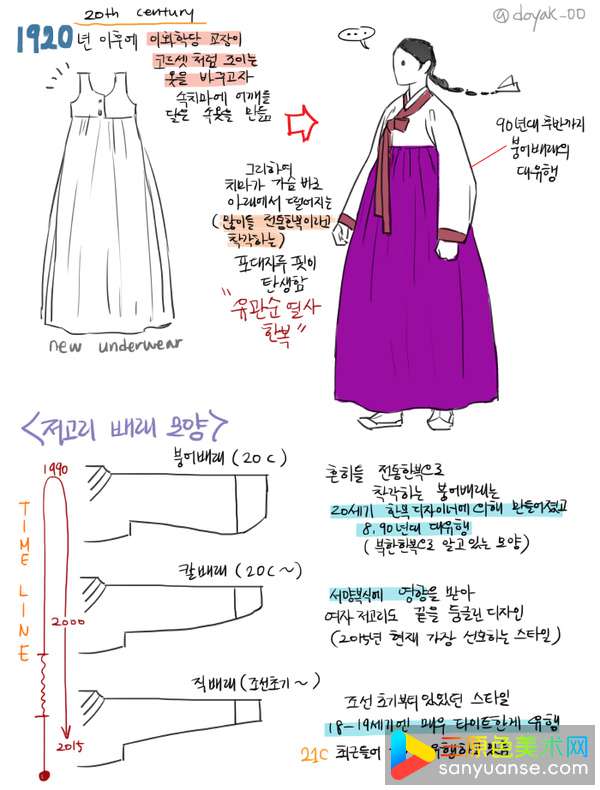 20th century
@doyak_00
1920년 이후에 이화학당 교장이
코르셋처럼 조이는
옷을 바꾸고자
속치마에 어깨를
달은 속옷을 만듦
new underwear
그리하여
치마가 가슴 바로
아래에서 떨어지는
(많이들 전통한복이라고
착각하는)
포대자루 핏이
탄생함
"유관순 열사
한복"
90년대 후반까지
붕어배래의
대유행
<저고리 배래 모양>
TIME LINE
1990
2000
2015
붕어배래 (20C)
흔히들 전통한복으로
착각하는 붕어배래는
20세기 한복 디자이너에 의해 만들어졌고
8, 90년대 대유행
(북한한복으로 알고 있는 모양)
칼배래 (20C~)
서양복식에 영향을 받아
여자 저고리도 끝을 둥글린 디자인
(2015년 현재 가장 선호하는 스타일)
직배래 (조선초기~)
조선 초기부터 있었던 스타일
18-19세기엔 매우 타이트한게 유행
21C 최근들어
三原色美术网
sanyuanse.com